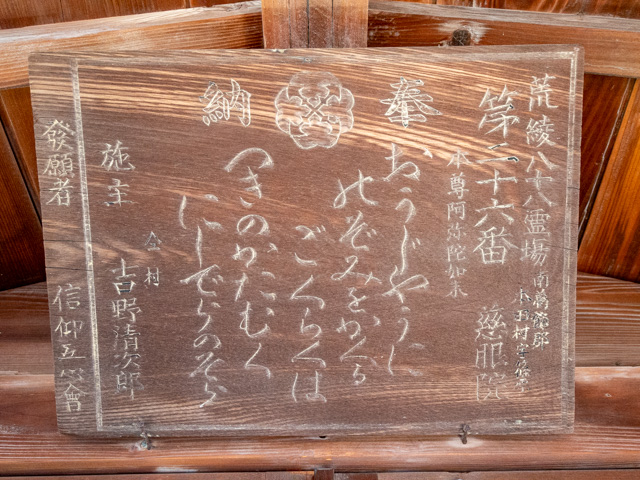 荒綾八十八霊場
南葛飾郡
第二十六番 慈眼院
本尊阿弥陀如来
奉納
おうじやうに
のぞみをかくる
ごくらくは
つきのかたむく
にしでらのそら
施主 仝村 吉野清次郎
發願者 信仰
會